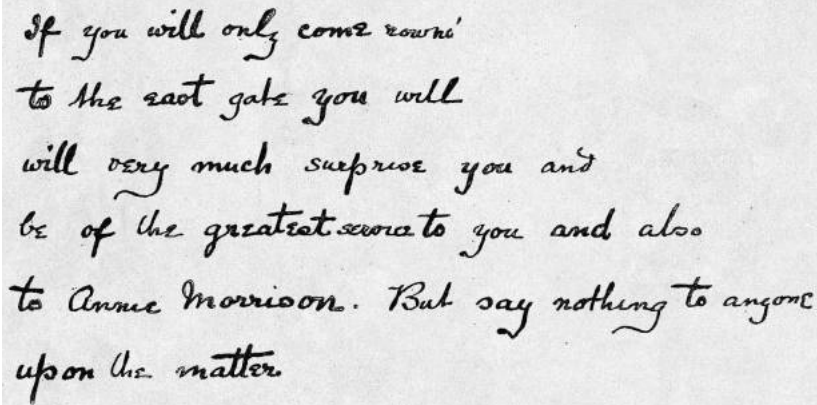 If you will only come round
to the east gate you will
will very much surprise you and
be of the greatest service to you and also
to Annie Morrison. But say nothing to anyone
upon the matter